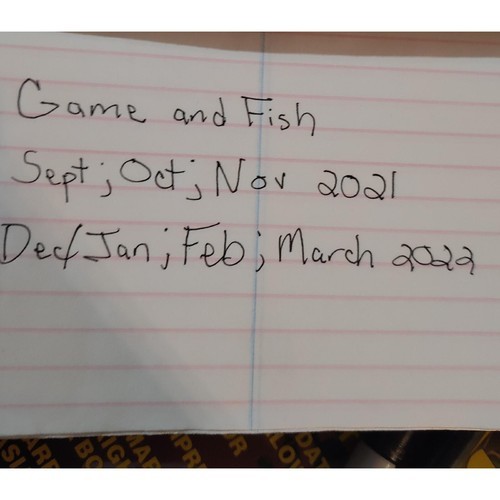 Game and Fish
Sept; Oct; Nov 2021
Dec/Jan; Feb; March 2022